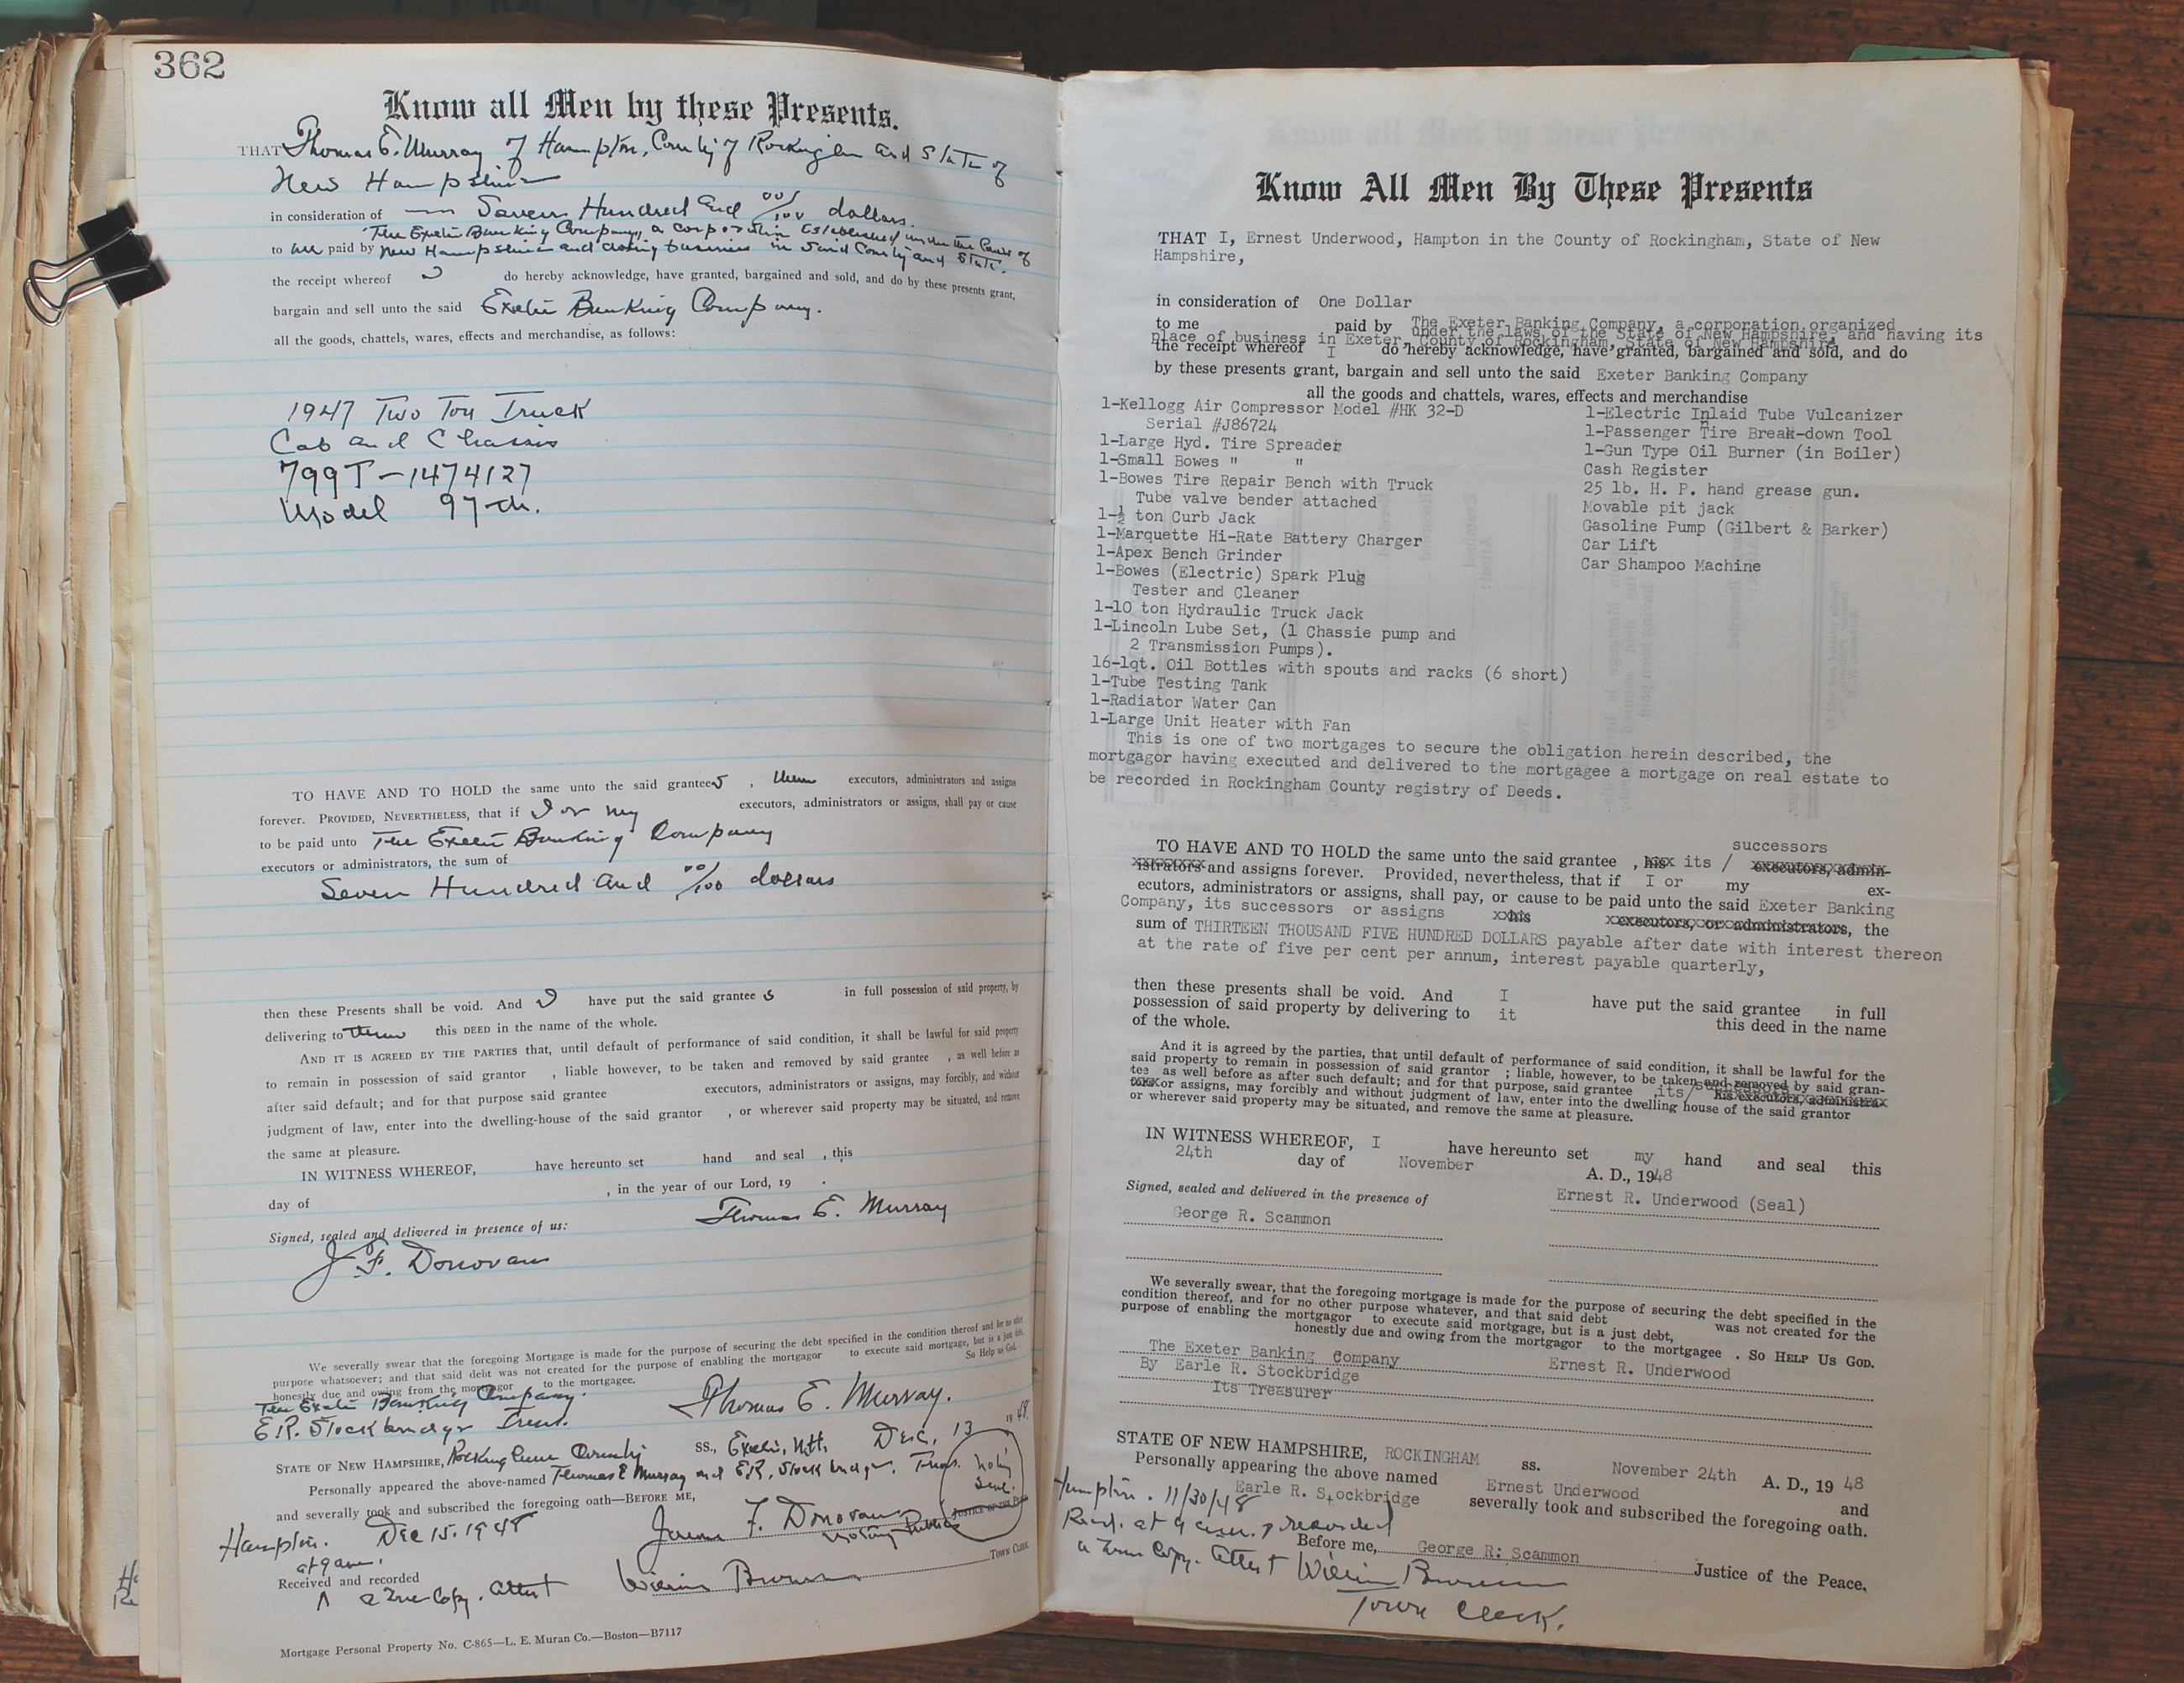 362
Know all Men by these Presents.
THAT Thomas E. Murray of Hampton, County of Rockingham and State of
New Hampshire
in consideration of — Seven Hundred and 00/100 dollars.
The Exeter Banking Company, a corporation established under the Laws of
to me paid by New Hampshire and doing business in said County and State.
the receipt whereof I do hereby acknowledge, have granted, bargained and sold, and do by these presents grant,
bargain and sell unto the said Exeter Banking Company.
all the goods, chattels, wares, effects and merchandise, as follows:
1947 Two Ton Truck
Cab and Chassis
799T-1474127
Model 97
TO HAVE AND TO HOLD the same unto the said grantees, them executors, administrators and assigns
forever. PROVIDED, NEVERTHELESS, that if I or my executors, administrators or assigns, shall pay or cause
to be paid unto The Exeter Banking Company
executors or administrators, the sum of
Seven Hundred and 00/100 dollars
then these Presents shall be void. And I have put the said grantee s in full possession of said property, by
delivering to them this DEED in the name of the whole.
AND IT IS AGREED BY THE PARTIES that, until default of performance of said condition, it shall be lawful for said property
to remain in possession of said grantor , liable however, to be taken and removed by said grantee , as well before as
after said default; and for that purpose said grantee executors, administrators or assigns, may forcibly, and without
judgment of law, enter into the dwelling-house of the said grantor , or wherever said property may be situated, and remove
the same at pleasure.
IN WITNESS WHEREOF, have hereunto set hand and seal , this
day of , in the year of our Lord, 19 .
Signed, sealed and delivered in presence of us: Thomas E. Murray
J. F. Donovan
We severally swear that the foregoing Mortgage is made for the purpose of securing the debt specified in the condition thereof and for no other
purpose whatsoever; and that said debt was not created for the purpose of enabling the mortgagor to execute said mortgage, but is a just debt,
honestly due and owing from the mortgagor to the mortgagee. So Help us God.
The Exeter Banking Company.
E.R. Stockbridge Treas. Thomas E. Murray.
STATE OF NEW HAMPSHIRE, Rockingham County SS., Exeter, N.H. Dec. 13 1948.
Personally appeared the above-named Thomas E Murray and E.R. Stockbridge, Treas.
and severally took and subscribed the foregoing oath—BEFORE ME,
Notary Seal.
Jerome F. Donovan JUSTICE OF THE PEACE
Notary Public
Hampton. Dec 15. 1948
at 9 am.
Received and recorded
a True Copy. Attest William Brown TOWN CLERK
Mortgage Personal Property No. C-865—L. E. Muran Co.—Boston—B7117
Know All Men By These Presents
THAT I, Ernest Underwood, Hampton in the County of Rockingham, State of New
Hampshire,
in consideration of One Dollar
to me paid by The Exeter Banking Company, a corporation organized
under the laws of the State of New Hampshire, and having its
place of business in Exeter, County of Rockingham, State of New Hampshire
the receipt whereof I do hereby acknowledge, have granted, bargained and sold, and do
by these presents grant, bargain and sell unto the said Exeter Banking Company
all the goods and chattels, wares, effects and merchandise
1-Kellogg Air Compressor Model #HK 32-D
Serial #J86724
1-Large Hyd. Tire Spreader
1-Small Bowes " "
1-Bowes Tire Repair Bench with Truck
Tube valve bender attached
1-½ ton Curb Jack
1-Marquette Hi-Rate Battery Charger
1-Apex Bench Grinder
1-Bowes (Electric) Spark Plug
Tester and Cleaner
1-10 ton Hydraulic Truck Jack
1-Lincoln Lube Set, (1 Chassie pump and
2 Transmission Pumps).
16-1qt. Oil Bottles with spouts and racks (6 short)
1-Tube Testing Tank
1-Radiator Water Can
1-Large Unit Heater with Fan
1-Electric Inlaid Tube Vulcanizer
1-Passenger Tire Break-down Tool
1-Gun Type Oil Burner (in Boiler)
Cash Register
25 lb. H. P. hand grease gun.
Movable pit jack
Gasoline Pump (Gilbert & Barker)
Car Lift
Car Shampoo Machine
This is one of two mortgages to secure the obligation herein described, the
mortgagor having executed and delivered to the mortgagee a mortgage on real estate to
be recorded in Rockingham County registry of Deeds.
successors
TO HAVE AND TO HOLD the same unto the said grantee , his its / executors, admin-
istrators and assigns forever. Provided, nevertheless, that if I or my ex-
ecutors, administrators or assigns, shall pay, or cause to be paid unto the said Exeter Banking
Company, its successors or assigns his executors, or administrators, the
sum of THIRTEEN THOUSAND FIVE HUNDRED DOLLARS payable after date with interest thereon
at the rate of five per cent per annum, interest payable quarterly,
then these presents shall be void. And I have put the said grantee in full
possession of said property by delivering to it this deed in the name
of the whole.
And it is agreed by the parties, that until default of performance of said condition, it shall be lawful for the
said property to remain in possession of said grantor ; liable, however, to be taken and removed by said gran-
tee as well before as after such default; and for that purpose, said grantee ,its/successors his executors, administra-
tors or assigns, may forcibly and without judgment of law, enter into the dwelling house of the said grantor
or wherever said property may be situated, and remove the same at pleasure.
IN WITNESS WHEREOF, I have hereunto set my hand and seal this
24th day of November A. D., 1948
Signed, sealed and delivered in the presence of Ernest R. Underwood (Seal)
George R. Scammon
We severally swear, that the foregoing mortgage is made for the purpose of securing the debt specified in the
condition thereof, and for no other purpose whatever, and that said debt was not created for the
purpose of enabling the mortgagor to execute said mortgage, but is a just debt,
honestly due and owing from the mortgagor to the mortgagee . SO HELP US GOD.
The Exeter Banking Company Ernest R. Underwood
By Earle R. Stockbridge
Its Treasurer
STATE OF NEW HAMPSHIRE, ROCKINGHAM ss. November 24th A. D., 19 48
Personally appearing the above named Ernest Underwood and
Earle R. Stockbridge severally took and subscribed the foregoing oath.
Hampton. 11/30/48
Recd. at 9 a.m. & recorded
Before me, George R. Scammon Justice of the Peace.
a True Copy. Attest William Brown
Town Clerk.